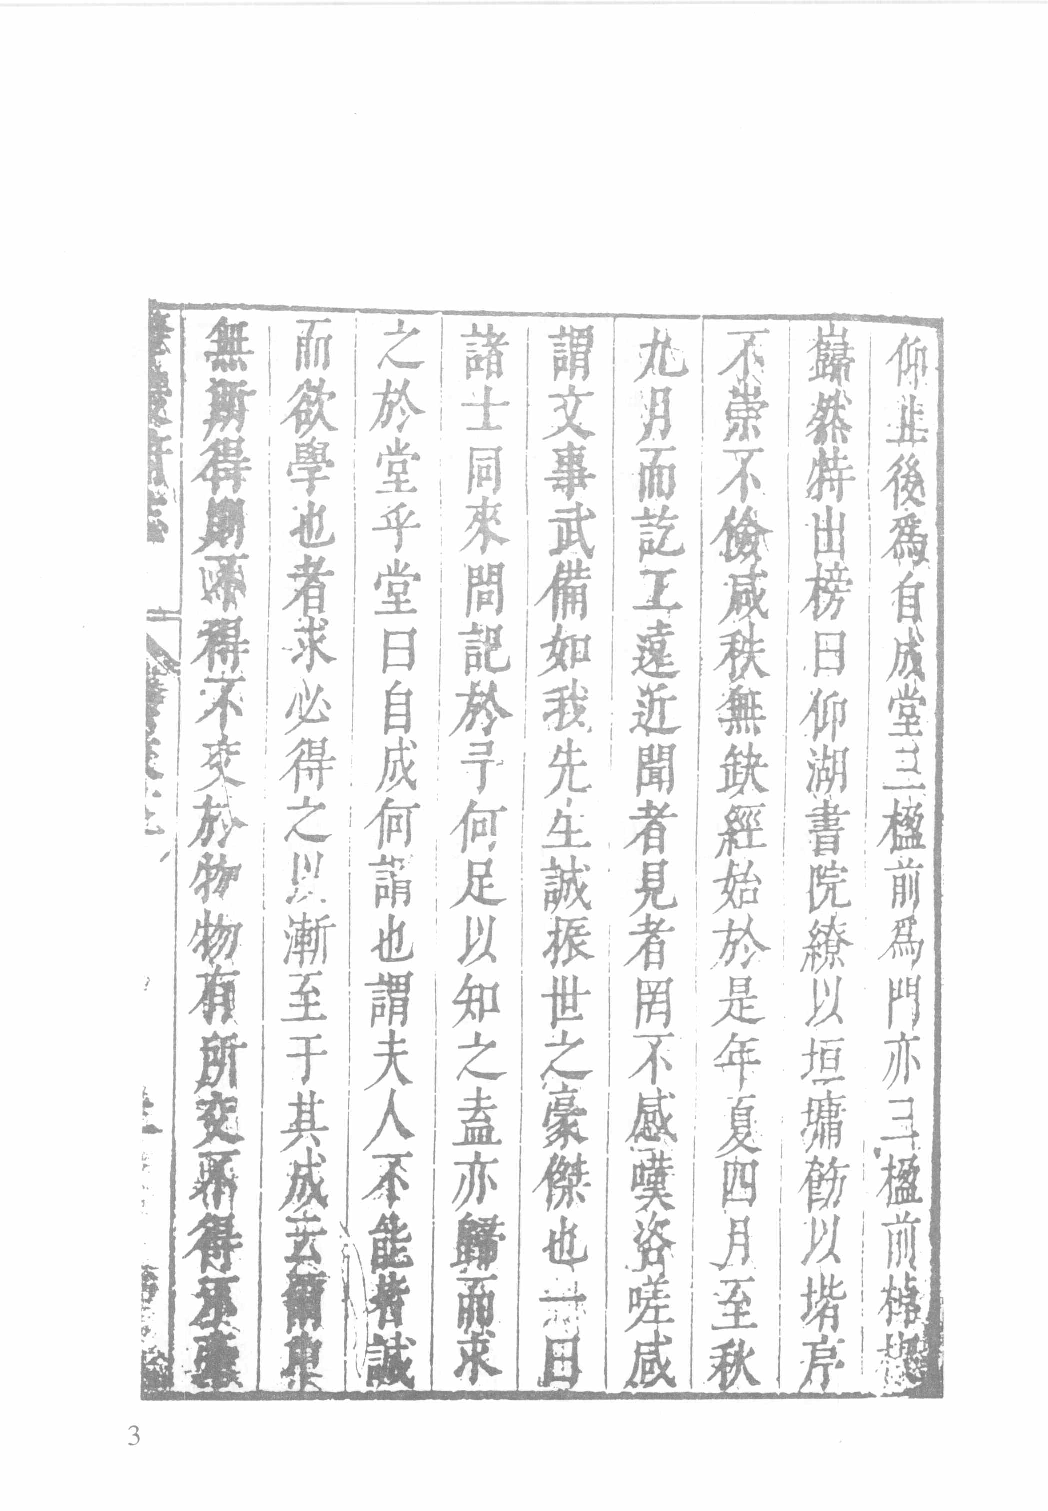 仰止後爲自成堂三楹前爲門亦三楹前樹
巋然特出榜曰仰湖書院繚以垣墉飭以堦戺
不崇不儉咸秩無缺經始於是年夏四月至秋
九月而訖工遠近聞者見者罔不感嘆洛嗟咸
謂文事武備如我先生誠振世之豪傑也一日
諸士同來問記於予何足以知之盍亦歸而求
之於堂乎堂曰自成何謂也謂夫人不能皆誠
而欲學也者求必得之以漸至于其成云爾
無斯得不交於物物有所交不得不
3